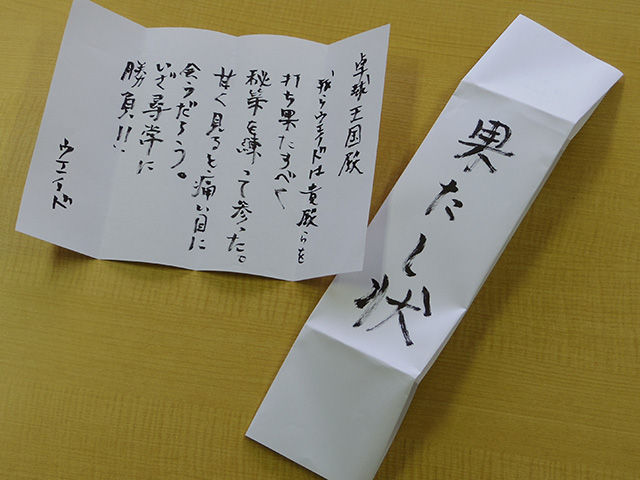 卓球王国殿
我らウエイドは貴殿らを
打ち果たすべく
秘策を練って参った。
甘く見ると痛い目に
会うだろう。
いざ尋常に
勝負!!
ウエイド
果たし状